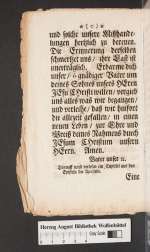 und solche unsere Mißhand-
lungen hertzlich zu bereuen.
Die Erinnerung derselben
schmertzet uns / ihre Last ist
unerträglich. Erbarme dich
unser / ô gnädiger Vater um
deines Sohnes unsers HErrn
JEsu Christi willen / vergib
uns alles was wir begangen /
und verleihe / daß wir hinfort
dir allezeit gefallen / in einem
neuen Leben / zur Ehre und
Preiß deines Nahmens durch
JEsum Christum unsern
HErrn. Amen.
Vater unser ic.
Darauf wird verlesen ein Capitel aus den
Episteln der Apostel.
Eine
Herzog August Bibliothek Wolfenbüttel